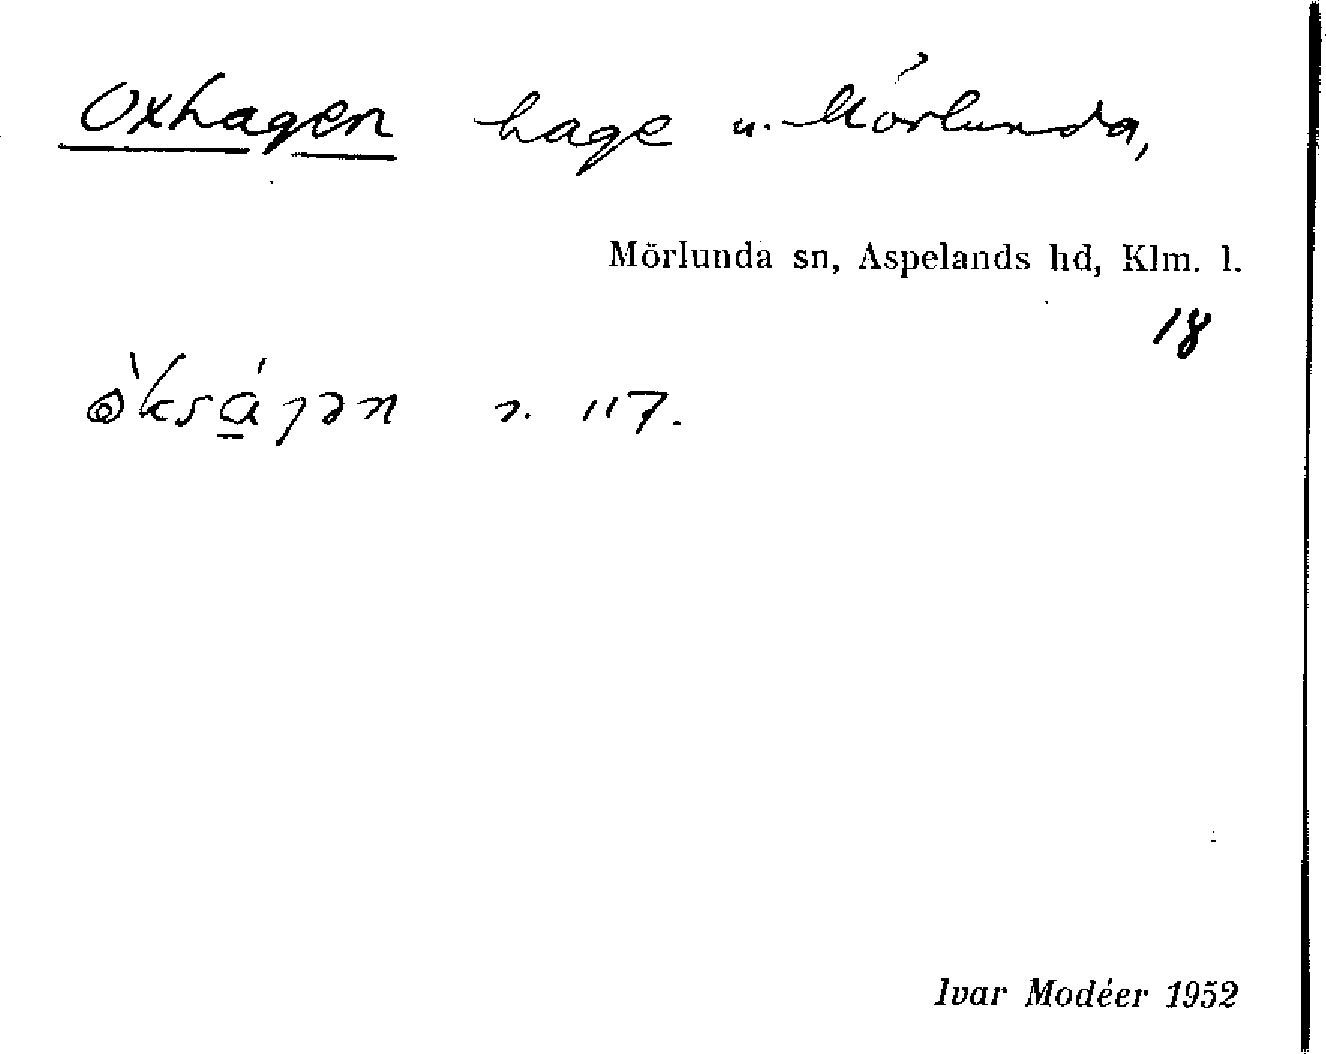 Oxhagen hage u. Mörlunda,
Mörlunda sn, Aspelands hd, Klm. l.
18
117.
Ivar Modéer 1952